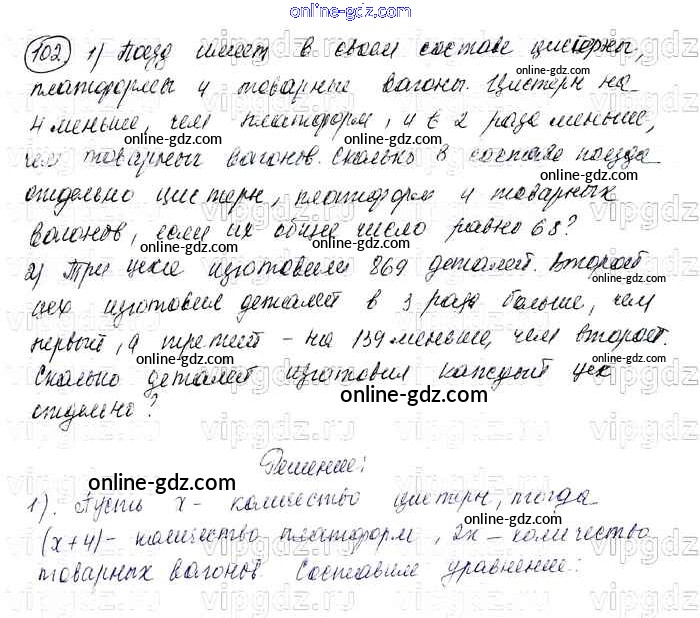 online-gdz.com
102 1) Поезд имеет в своем составе цистерны,
платформы и товарные вагоны. Цистерн на
online-gdz.com
4 меньше, чем платформ, и в 2 раза меньше,
online-gdz.com
чем товарных вагонов. Сколько в составе поезда
отдельно цистерн, платформ и товарных
online-gdz.com
вагонов, если их общее число равно 68?
online-gdz.com
2) Три цеха изготовили 869 деталей. Второй
цех изготовил деталей в 3 раза больше, чем
online-gdz.com
первый, а третий - на 139 меньше, чем второй.
online-gdz.com
Сколько деталей изготовил каждый цех
отдельно?
online-gdz.com
Решение:
online-gdz.com
1). Пусть x - количество цистерн, тогда
online-gdz.com
(x+4) - количество платформ, 2x - количество
товарных вагонов. Составим уравнение:
online-gdz.com